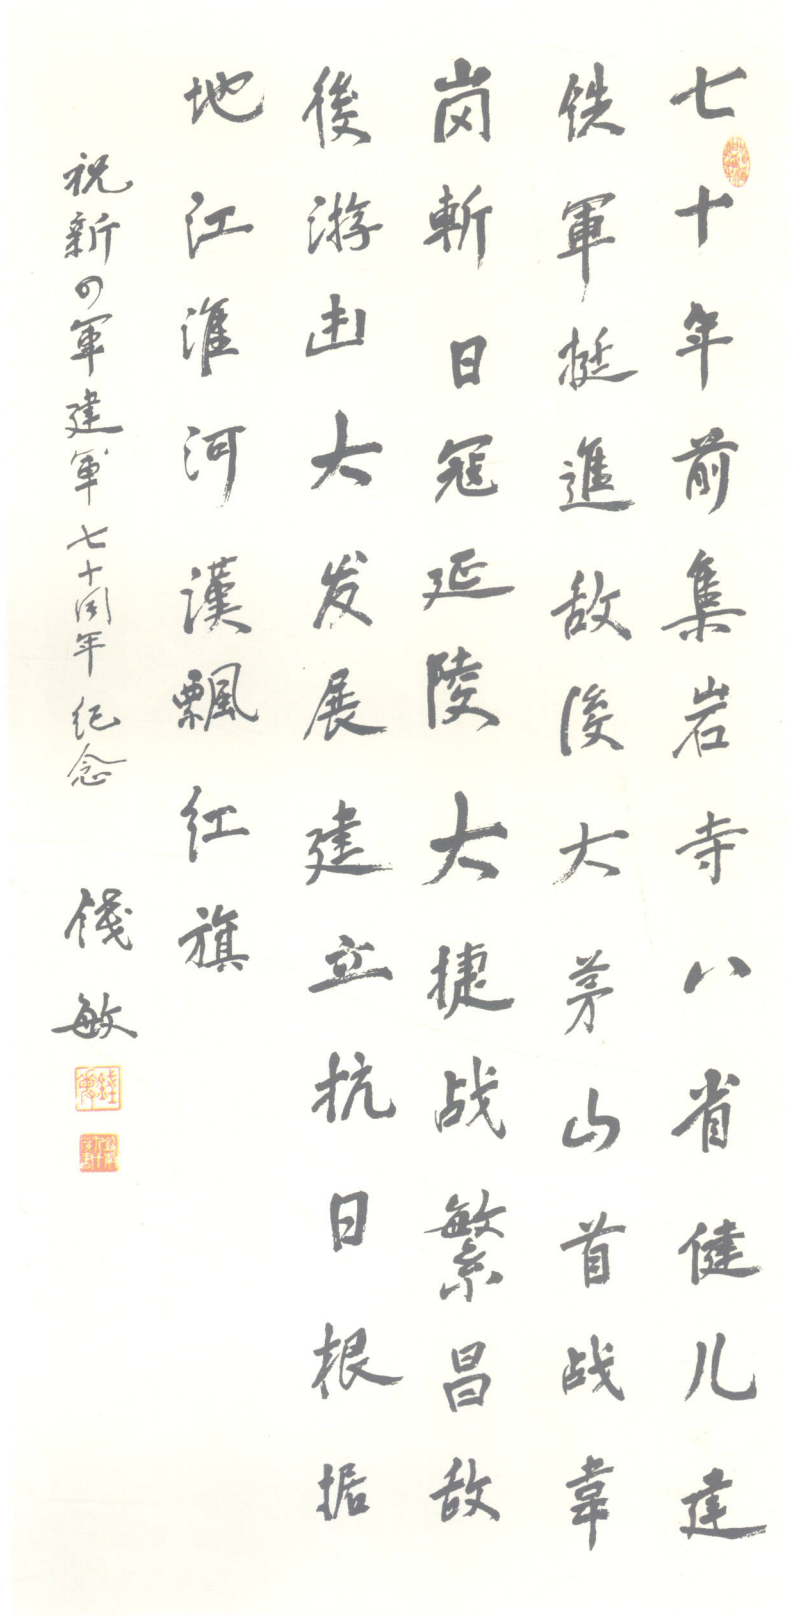 七十年前集岩寺八省健儿建
铁軍挺進敌後大茅山首战韋
岗斬日冠延陵大捷战繁昌敌
後游击大发展建立抗日根据
地江淮河漢飄红旗
祝新四軍建軍七十周年纪念
錢敏